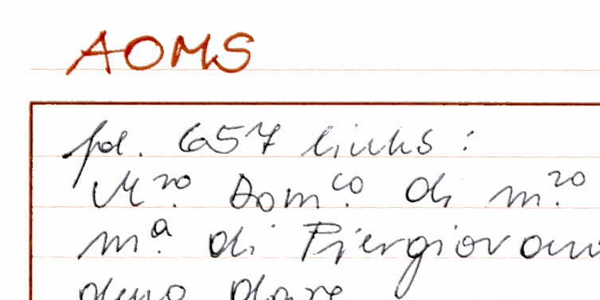 AOMS
fol. 657 links:
M.ro Dom.co di m.ro
m.a di Piergiovann
deno dare